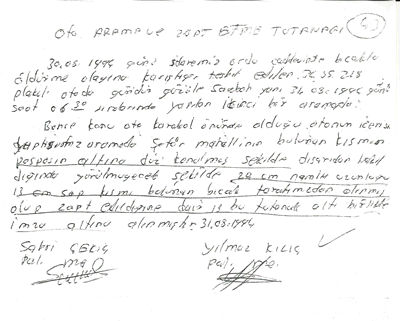 OTO ARAMA VE ZAPT ETME TUTANAĞI
30.05.1994 günü ilçemiz ordu caddesinde bıcakla
öldürme olayına karıştığı tesbit edilen 34
plakalı otoda gündüz gözüyle Sabah yani 31.05.1994 günü
saat 06 30 sıralarında yapılan ikinci bir aramada;
Bahse konu oto karakol önünde olduğu otonun içerisi
yaptığımız aramada Şoför mahallinin bulunan kısmın
paspasın altına düz konulmuş şekilde dışarıdan
dığında görülmüyecek şekilde 20 cm namlu uzunluğu
15 cm sap kısmı bulunan bıcak tarafımızdan alınmış
olup zapt edildiğine dair iş bu tutanak altı birlikte
imza altına alınmıştır. 31.05.1994
Sabri ÇEKİÇ
YILMAZ KILIÇ
Pol.
Pol.